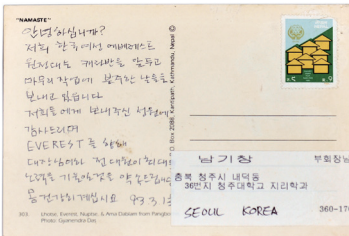 "NAMASTE"
안녕하십니까?
저희 한국여성 에베레스트
원정대는 카라반을 앞두고
마무리 작업에 분주한 날들을
보내고 있습니다.
저희들에게 보내주신 성원에
감사드리며
EVEREST를 향해
노력을 기울일것을 약속드립니다
건강히 계십시요 93. 3. 1
303. Lhotse, Everest, Nuptse, & Ama Dablam from Pangbo
Photo: Gyanendra Das
Box 2086, Kantipath, Kathmandu, Nepal ©
남기창 부회장님
충북 청주시 내덕동
36번지 청주대학교 지리학과
SEOUL KOREA 360-17